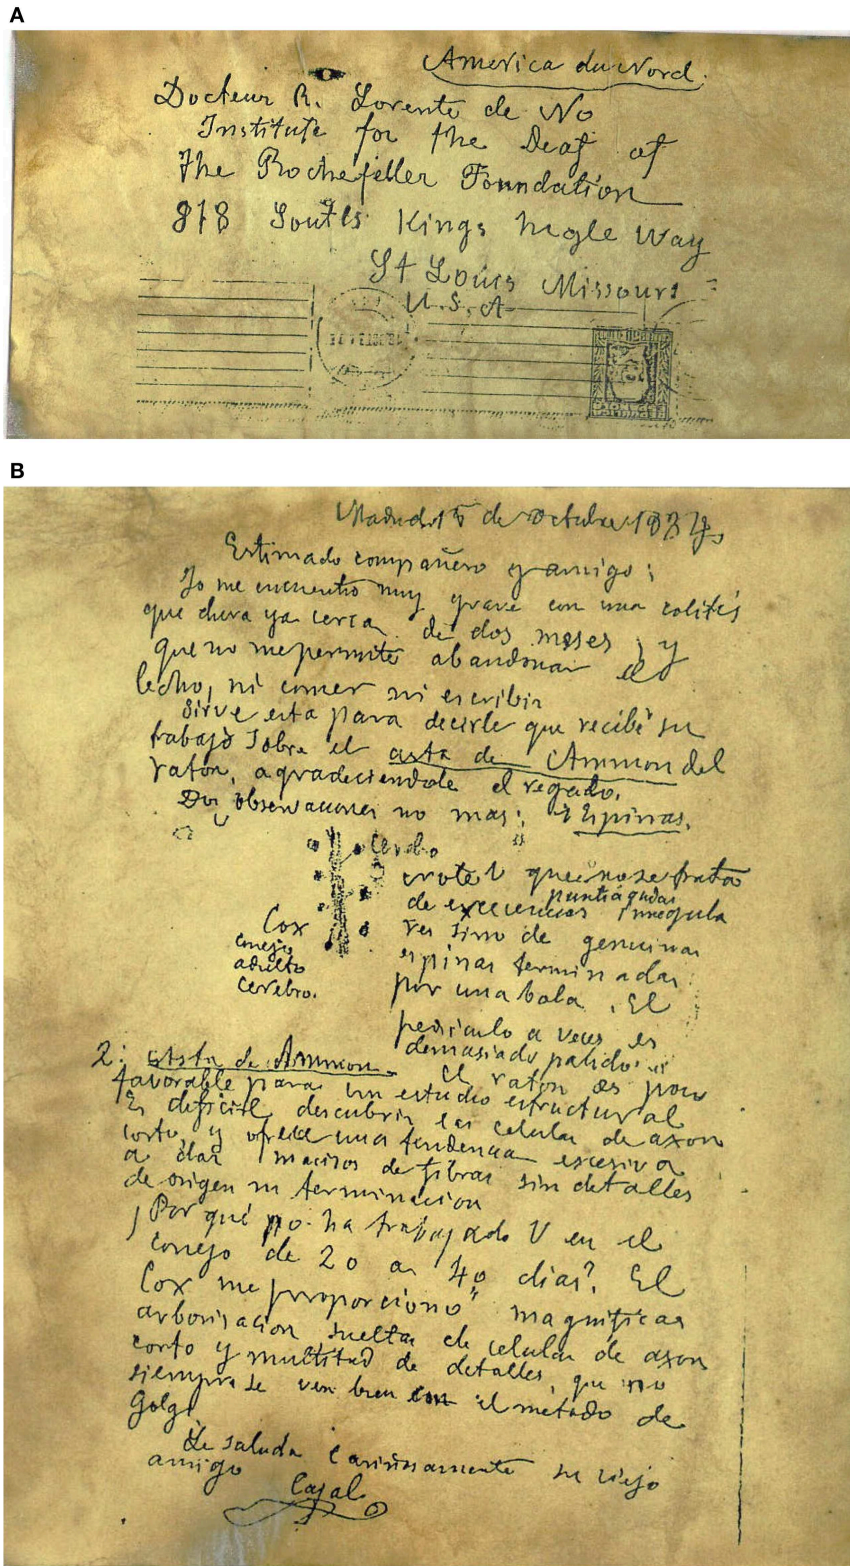 A
America du Nord.
Docteur R. Lorente de No
Institute for the Deaf of
the Rochefeller Foundation
818 South Kings higle Way
St Louis Missouri
U.S.A
B
Madrid 15 de Octubre 1934
Estimado compañero y amigo:
Yo me encuentro muy grave con una colitis
que dura ya cerca de dos meses, y
que no me permite abandonar el
lecho, ni comer ni escribir
Sirve esta para decirle que recibí su
trabajo sobre el asta de Ammon del
raton, agradeciendole el regado.
Dos observaciones no mas: Espinas.
Cerebro
Cox
conejo
adulto
cerebro.
note V que no se trata
puntiagudas
de excrecencias irregula
res sino de genuinas
espinas terminadas
por una bola. El
pediculo a veces es
demasiado palido.
2: Asta de Ammon. El raton es poco
favorable para un estudio estructural
Es dificil descubrir las celulas de axon
corto, y ofrece una tendencia excesiva
a dar macisos de fibras sin detalles
de origen ni terminacion
¿Por qué no ha trabajado V en el
conejo de 20 a 40 dias? El
Cox me proporcionó magnificas
arborisacion sueltas de celulas de axon
corto y multitud de detalles, que no
siempre se ven bien con el metodo de
Golgi
Le saluda cariñosamente su viejo
amigo
Cajal